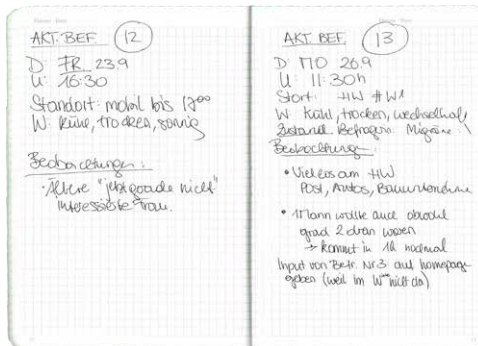 AKT. BEF. 12
D: FR. 23.9
U: 16:30
Standort: mobil bis 17⁰⁰
W: kühl, trocken, sonnig
Beobachtungen:
• Ältere "jetzt gerade nicht"
interessierte Frau.
AKT. BEF. 13
D: MO 26.9
U: 11:30h
Start: HW #W1
W: kühl, trocken, wechselhaft
Zustand Befragerin: Migräne :\
Beobachtung:
• Viel los am HW
Post, Autos, Bauunternehmen
• 1 Mann wollte auch obwohl
grad 2 dran waren
→ kommt in 1h nochmal
Input von Betr. Nr 3 auf homepage
geben (weil im nicht da)